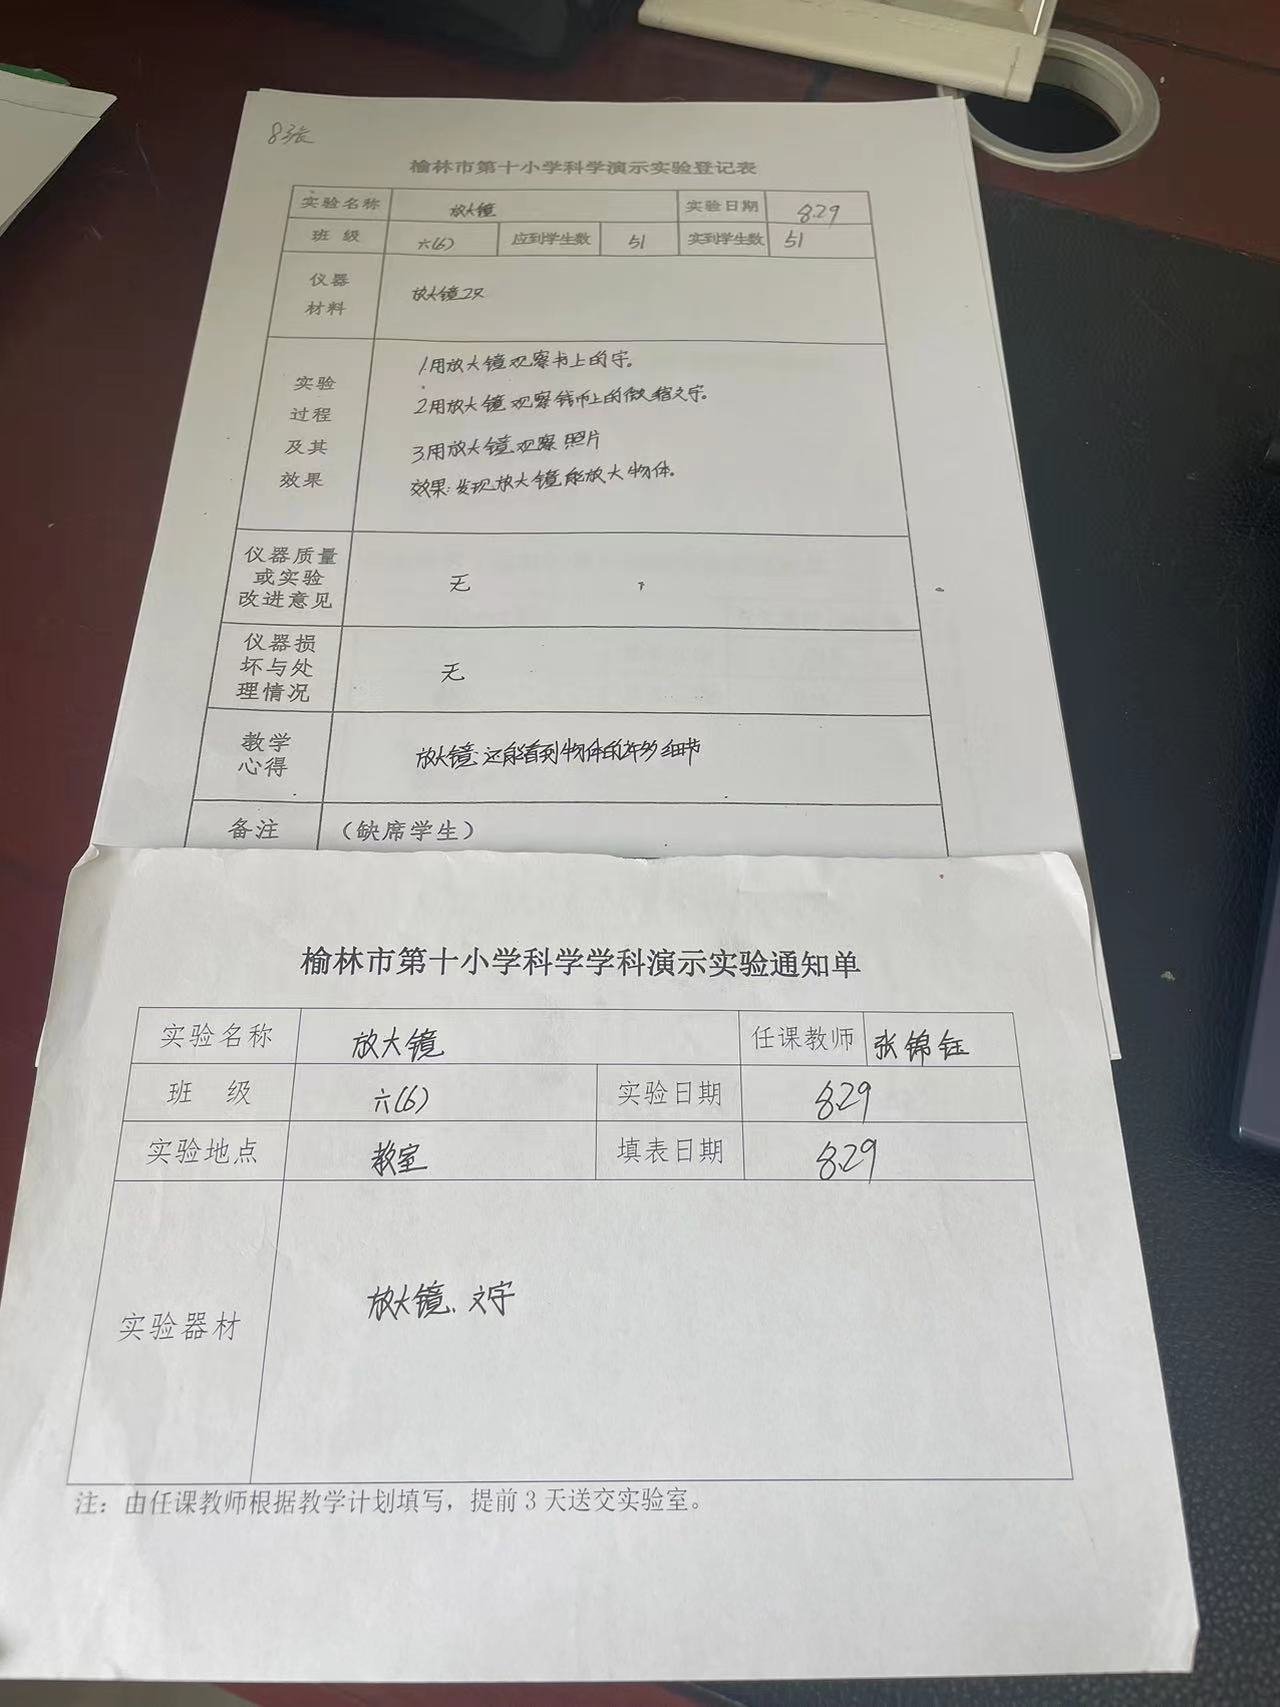 8张
榆林市第十小学科学演示实验登记表
实验名称 放大镜 实验日期 8.29
班 级 六(6) 应到学生数 51 实到学生数 51
仪器
材料
放大镜2只
实验
过程
及其
效果
1.用放大镜观察书上的字。
2.用放大镜观察钱币上的微缩文字。
3.用放大镜观察照片
效果:发现放大镜能放大物体。
仪器质量
或实验
改进意见
无
仪器损
坏与处
理情况
无
教学
心得
放大镜还能看到物体的许多细节
备注 （缺席学生）
榆林市第十小学科学学科演示实验通知单
实验名称 放大镜 任课教师 张锦钰
班 级 六(6) 实验日期 8.29
实验地点 教室 填表日期 8.29
实验器材 放大镜、文字
注：由任课教师根据教学计划填写，提前3天送交实验室。